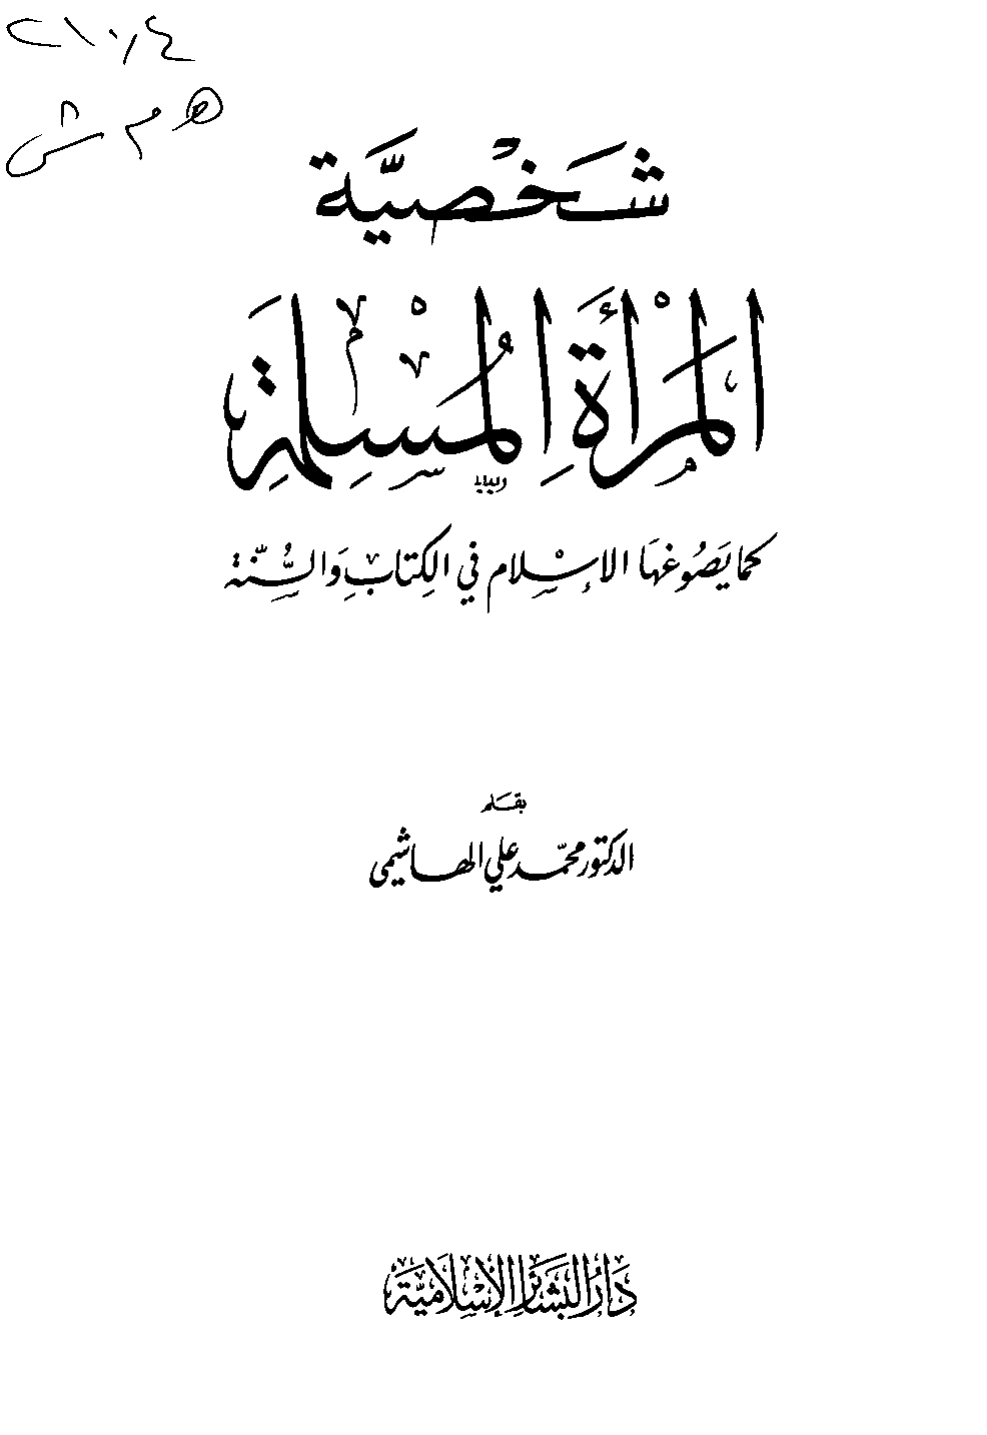 شَخْصيَّة
المَرْأَةِ المُسْلِمَةِ
كما يَصُوغُهَا الإسْلام في الكِتابِ وَالسُّنّة
بقَلم
الدكتور محمّد علي الهاشمي
دَارُ البَشائرِ الإسْلاميَّة